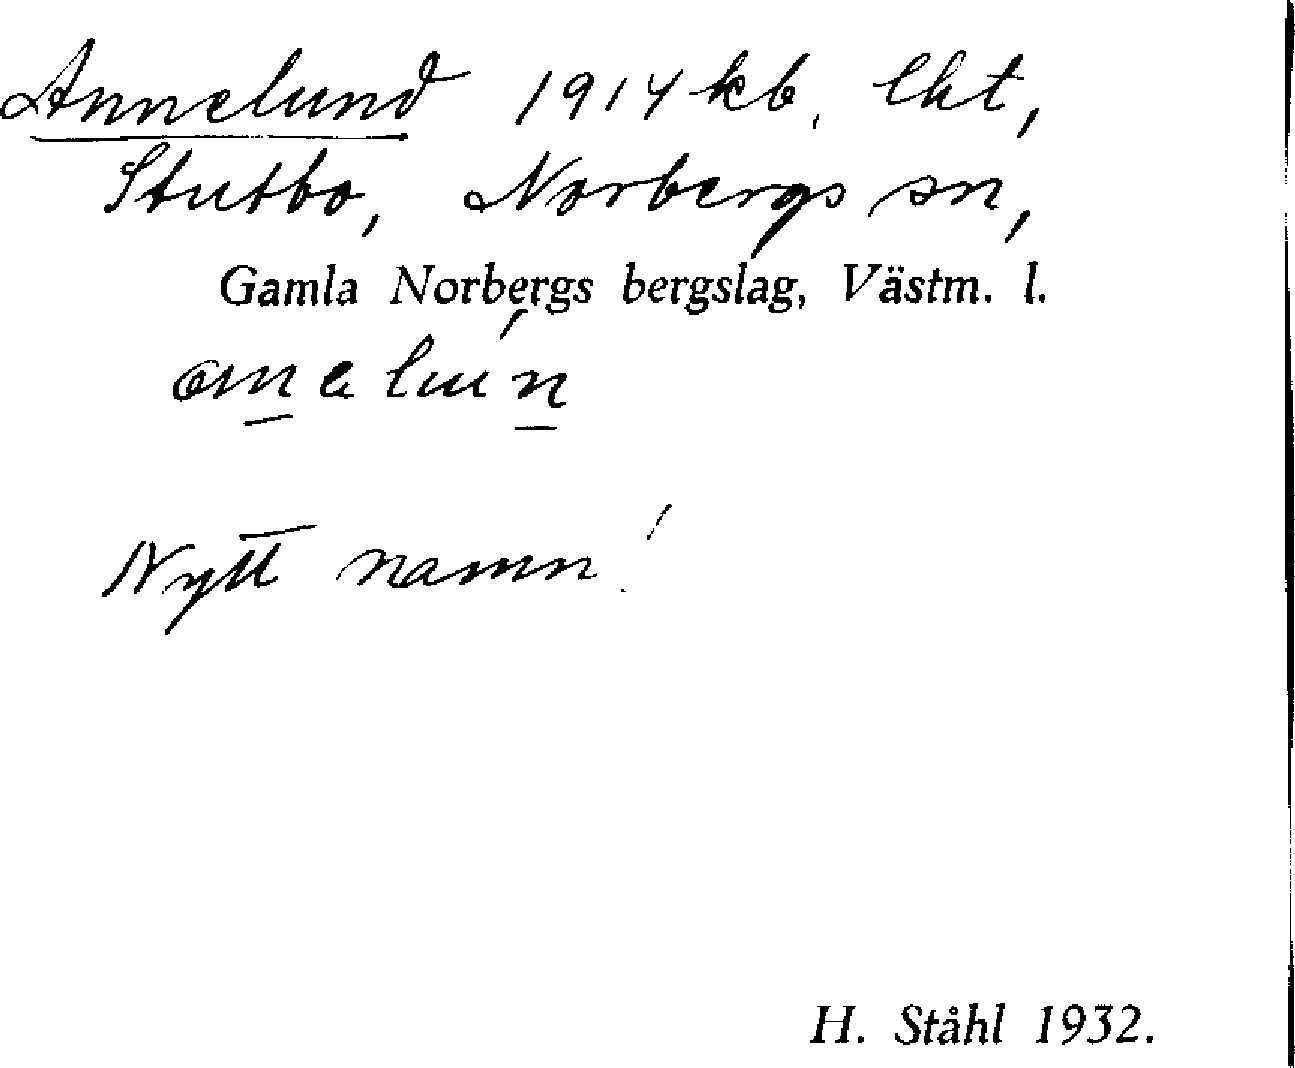 Annelund 1914 kb. lht,
Stutbo, Norbergs sn,
Gamla Norbergs bergslag, Västm. l.
Nytt namn!
H. Ståhl 1932.